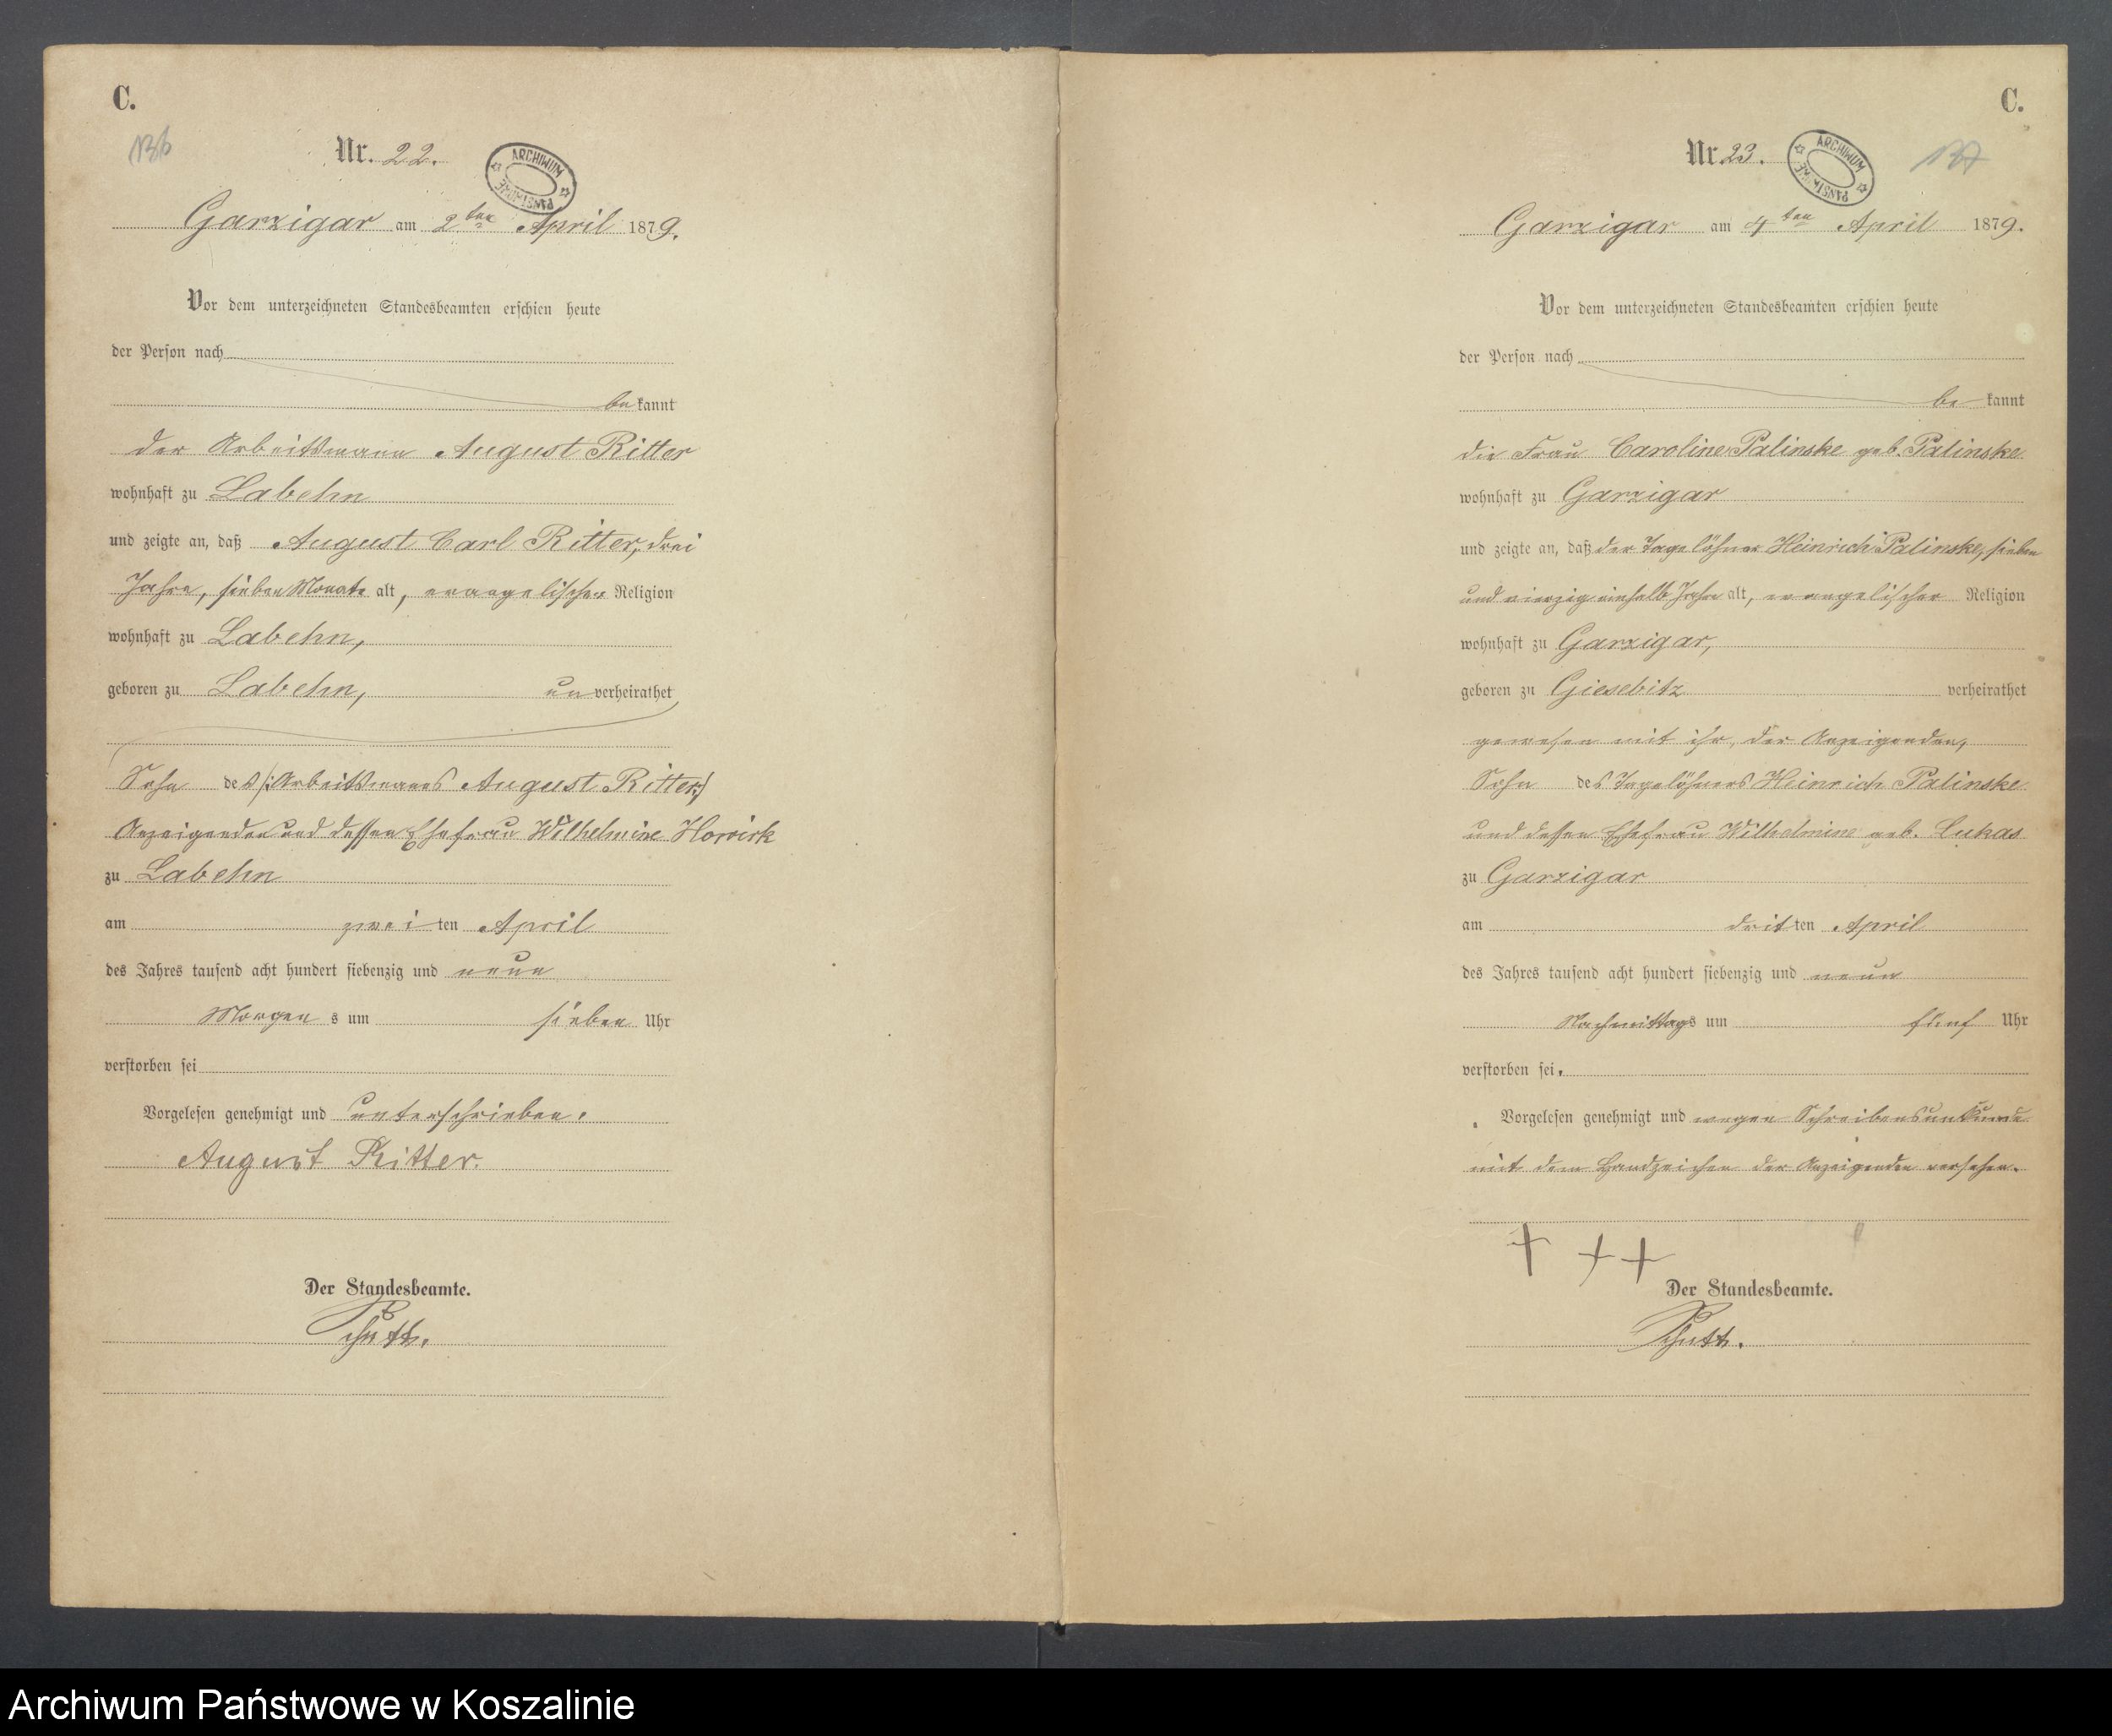 C.
136
Nr. 22.
ARCHIWUM PAŃSTWOWE
Garzigar am 2ten April 1879.
Vor dem unterzeichneten Standesbeamten erschien heute
der Person nach
be kannt
der Arbeitsmann August Ritter
wohnhaft zu Labehn
und zeigte an, daß August Carl Ritter, drei
Jahre, sieben Monate alt, evangelischer Religion
wohnhaft zu Labehn,
geboren zu Labehn, un verheirathet
Sohn des /: Arbeitsmanns August Ritter :/
Anzeigenden und dessen Ehefrau Wilhelmine
zu Labehn
am zwei ten April
des Jahres tausend acht hundert siebenzig und neun
Morgen s um sieben Uhr
verstorben sei
Vorgelesen genehmigt und unterschrieben.
August Ritter.
Der Standesbeamte.
C.
137
Nr. 23.
ARCHIWUM PAŃSTWOWE
Garzigar am 4ten April 1879.
Vor dem unterzeichneten Standesbeamten erschien heute
der Person nach
be kannt
die Frau Caroline Palinske geb. Palinske
wohnhaft zu Garzigar
und zeigte an, daß der Tagelöhner Heinrich Palinske, sieben
und vierzig einhalb Jahre alt, evangelischer Religion
wohnhaft zu Garzigar,
geboren zu Giesebitz verheirathet
gewesen mit ihr, der Anzeigenden,
Sohn des Tagelöhners Heinrich Palinske
und dessen Ehefrau Wilhelmine geb. Lukas
zu Garzigar
am drit ten April
des Jahres tausend acht hundert siebenzig und neun
Nachmittags um fünf Uhr
verstorben sei.
Vorgelesen genehmigt und wegen Schreibensunkunde
mit dem Handzeichen der Anzeigenden versehen.
+ + +
Der Standesbeamte.
Archiwum Państwowe w Koszalinie